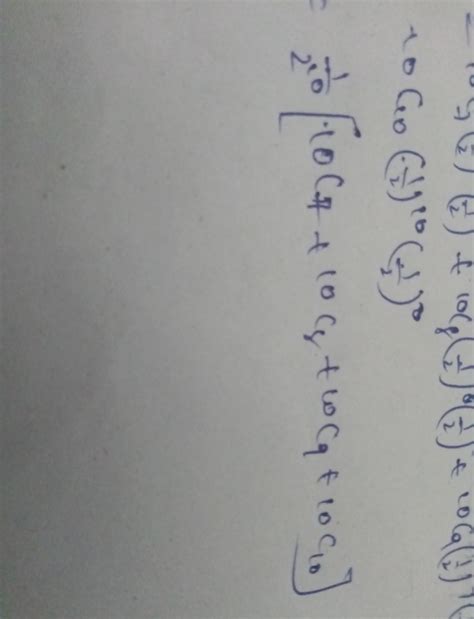 = 10C7 (1/2) (1/2) + 10C8 (1/2)^8 (1/2) + 10C9 (1/2)^9 (
10C10 (1/2)^10 (1/2)^0
= 1/2^10 [10C7 + 10C8 + 10C9 + 10C10]